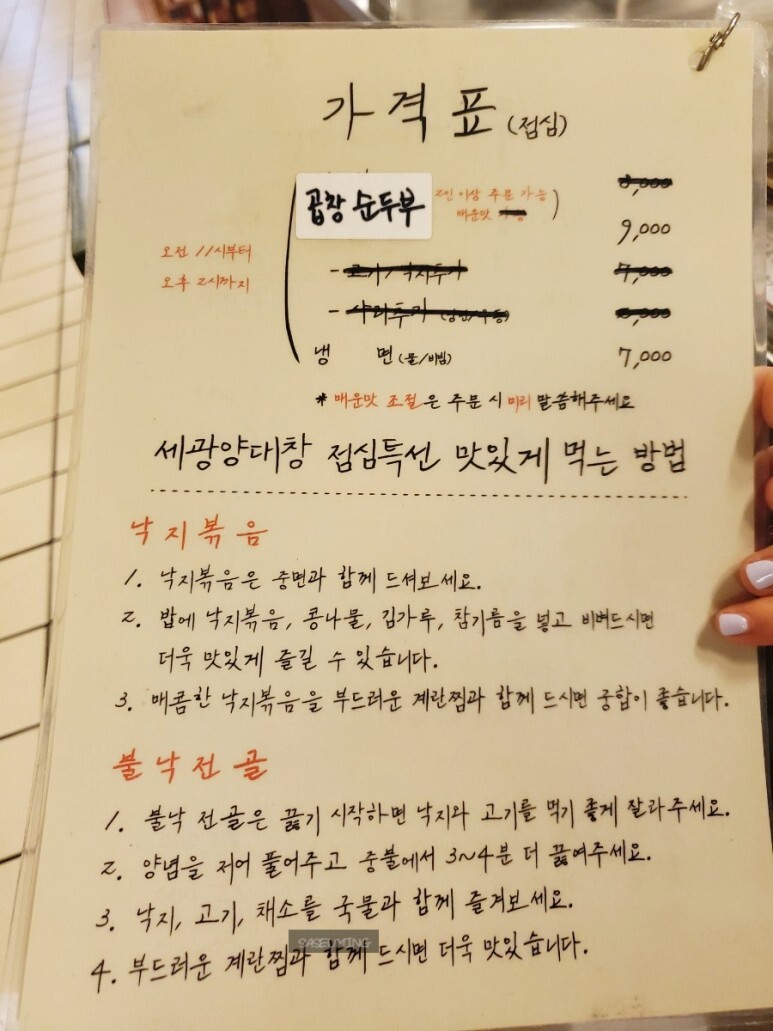 가격표 (점심)
8,000
곱창 순두부 2인 이상 주문 가능
매운맛
9,000
오전 11시부터
오후 2시까지
- 고기/낙지추가 7,000
- 사리추가
냉 면 (물/비빔) 7,000
* 매운맛 조절은 주문 시 미리 말씀해주세요
세광양대창 점심특선 맛있게 먹는 방법
낙지볶음
1. 낙지볶음은 중면과 함께 드셔보세요.
2. 밥에 낙지볶음, 콩나물, 김가루, 참기름을 넣고 비벼드시면
더욱 맛있게 즐길 수 있습니다.
3. 매콤한 낙지볶음을 부드러운 계란찜과 함께 드시면 궁합이 좋습니다.
불낙전골
1. 불낙 전골은 끓기 시작하면 낙지와 고기를 먹기 좋게 잘라주세요.
2. 양념을 저어 풀어주고 중불에서 3~4분 더 끓여주세요.
3. 낙지, 고기, 채소를 국물과 함께 즐겨보세요.
SASEUMING
4. 부드러운 계란찜과 함께 드시면 더욱 맛있습니다.